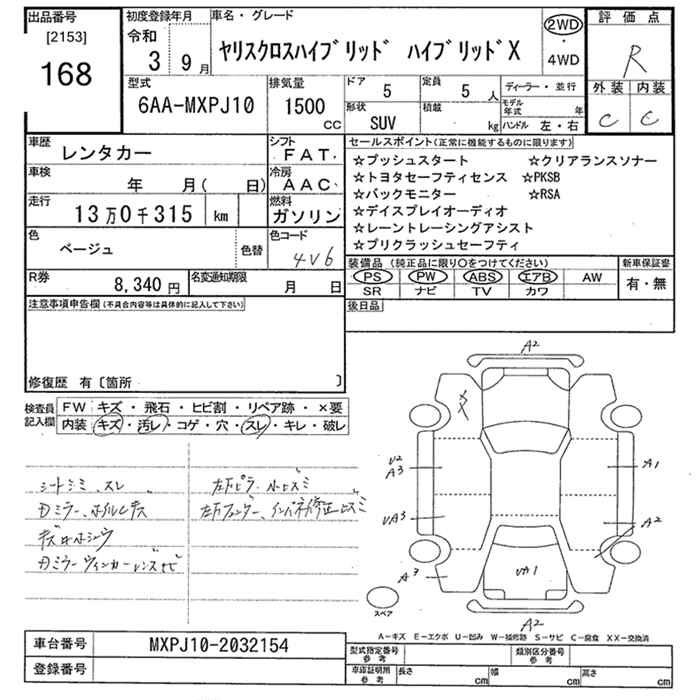 出品番号
[2153]
168
初度登録年月
令和
3 9月
車名・グレード
ヤリスクロスハイブリッド ハイブリッドX
2WD
・
4WD
評価点
R
外装 内装
C C
型式
6AA-MXPJ10
排気量
1500
CC
ドア
5
定員
5 人
形状
SUV
積載
kg
ディーラー・並行
モデル年式 年
ハンドル 左・右
車歴
レンタカー
シフト
FAT
車検
年 月( 日)
冷房
AAC
走行
13万0千315 km
燃料
ガソリン
色
ベージュ
色替
色コード
4V6
R券
8,340 円
名変通知期限
月 日
セールスポイント(正常に機能するものに限ります)
☆プッシュスタート ☆クリアランスソナー
☆トヨタセーフティセンス ☆PKSB
☆バックモニター ☆RSA
☆デイスプレイオーディオ
☆レーントレーシングアシスト
☆プリクラッシュセーフティ
装備品(純正品に限り○をつけてください)
PS PW ABS エアB AW
SR ナビ TV カワ
新車保証書
有・無
注意事項申告欄(不具合内容等は具体的に記入して下さい)
後日品
修復歴 有〔箇所 〕
検査員記入欄
FW キズ・飛石・ヒビ割・リペア跡・×要
内装 キズ・汚レ・コゲ・穴・スレ・キレ・破レ
シートシミ、スレ
A2
U2
A3
A1
UA3
A2
A3
UA1
A2
スペア
A-キズ E-エクボ U-凹み W-補修跡 S-サビ C-腐食 XX-交換済
車台番号
MXPJ10-2032154
登録番号
型式指定番号
参考
類別区分番号
参考
車庫証明用
参考
長さ cm 幅 cm 高さ cm